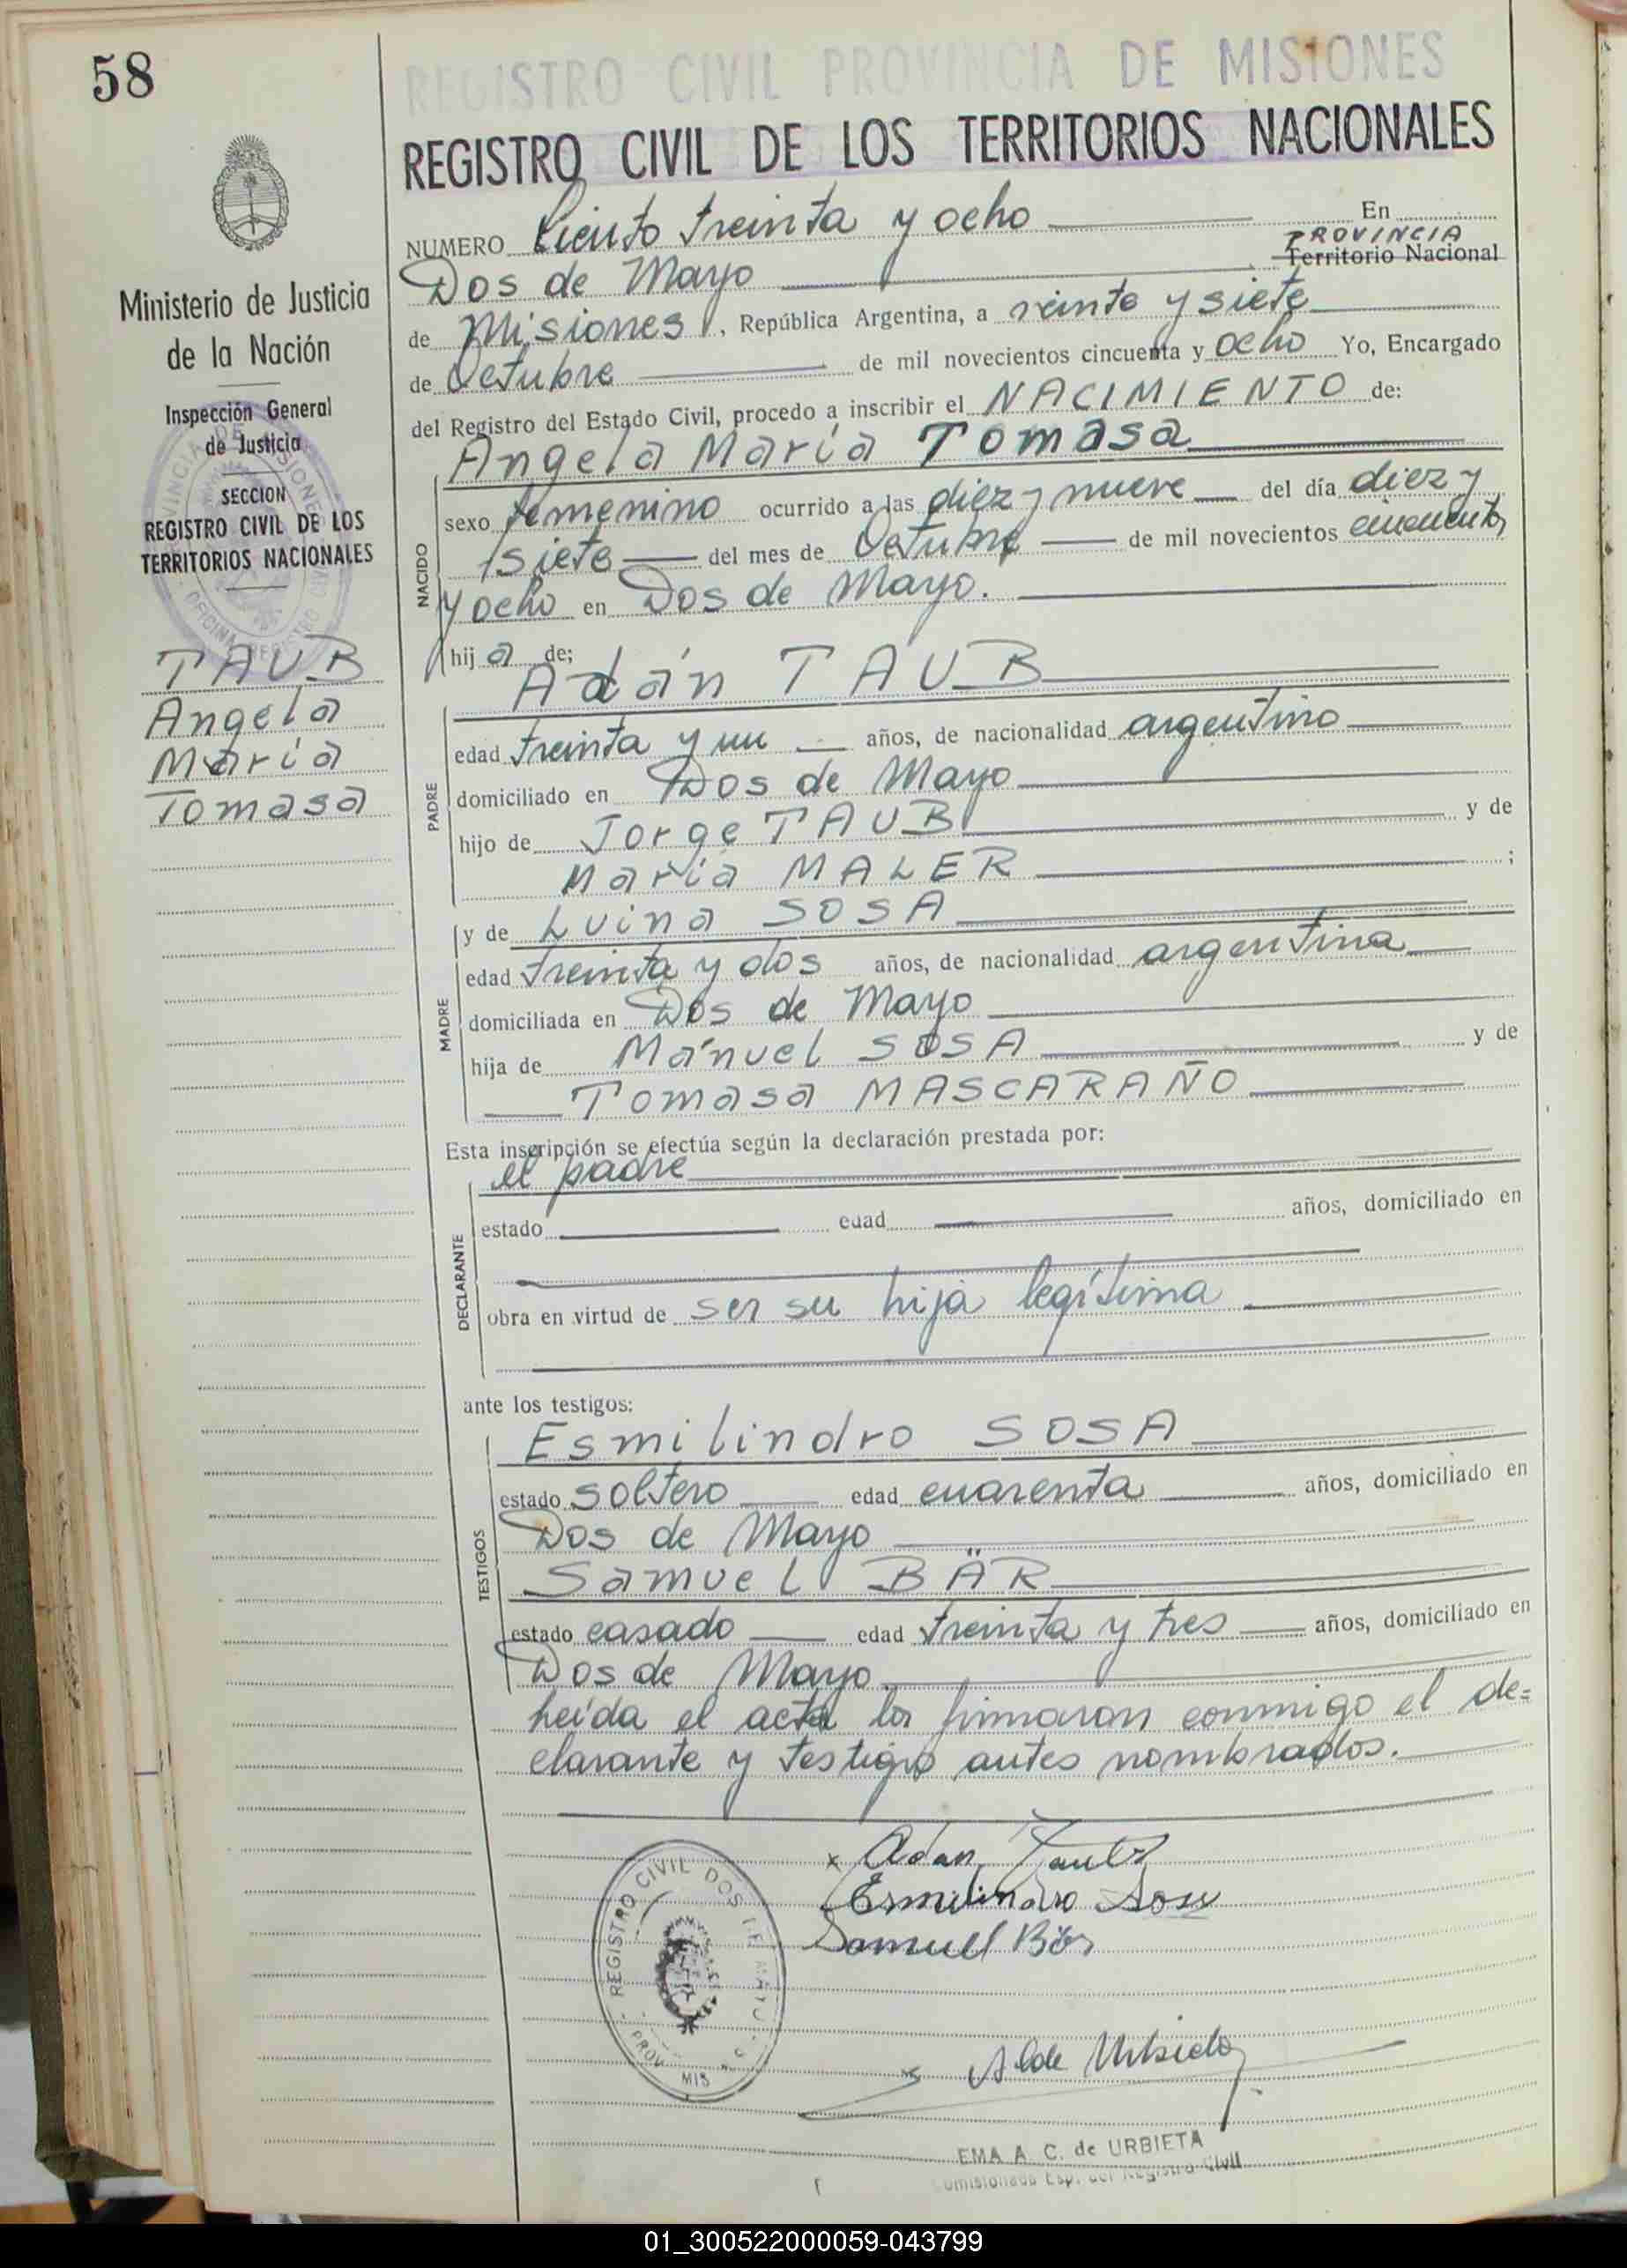 58
REGISTRO CIVIL PROVINCIA DE MISIONES
REGISTRO CIVIL DE LOS TERRITORIOS NACIONALES
Ministerio de Justicia
de la Nación
Inspección General
de Justicia
SECCION
REGISTRO CIVIL DE LOS
TERRITORIOS NACIONALES
TAUB
Angela
María
Tomasa
NUMERO Ciento treinta y ocho En
Dos de Mayo PROVINCIA Territorio Nacional
de Misiones, República Argentina, a veinte y siete
de Octubre de mil novecientos cincuenta y ocho Yo, Encargado
del Registro del Estado Civil, procedo a inscribir el NACIMIENTO de:
Angela María Tomasa
NACIDO
sexo femenino ocurrido a las diez y nueve del día diez y
siete del mes de Octubre de mil novecientos cincuenta
y ocho en Dos de Mayo.
hij a de;
Adán TAUB
PADRE
edad treinta y un años, de nacionalidad argentino
domiciliado en Dos de Mayo
hijo de Jorge TAUB y de
María MALER ;
y de Luina SOSA
MADRE
edad treinta y dos años, de nacionalidad argentina
domiciliada en Dos de Mayo
hija de Manuel SOSA y de
Tomasa MASCARAÑO
Esta inscripción se efectúa según la declaración prestada por:
el padre
DECLARANTE
estado edad años, domiciliado en
obra en virtud de ser su hija legítima
ante los testigos:
TESTIGOS
Esmilindro SOSA
estado soltero edad cuarenta años, domiciliado en
Dos de Mayo
Samuel BÄR
estado casado edad treinta y tres años, domiciliado en
Dos de Mayo
Leída el acta la firmaron conmigo el de=
clarante y testigos antes nombrados.
Adan Taub
Esmilindro Sosa
Samuel Bär
REGISTRO CIVIL DOS DE MAYO
PROV. MIS
EMA A. C. de URBIETA
Comisionada Esp. del Registro Civil
01_300522000059-043799